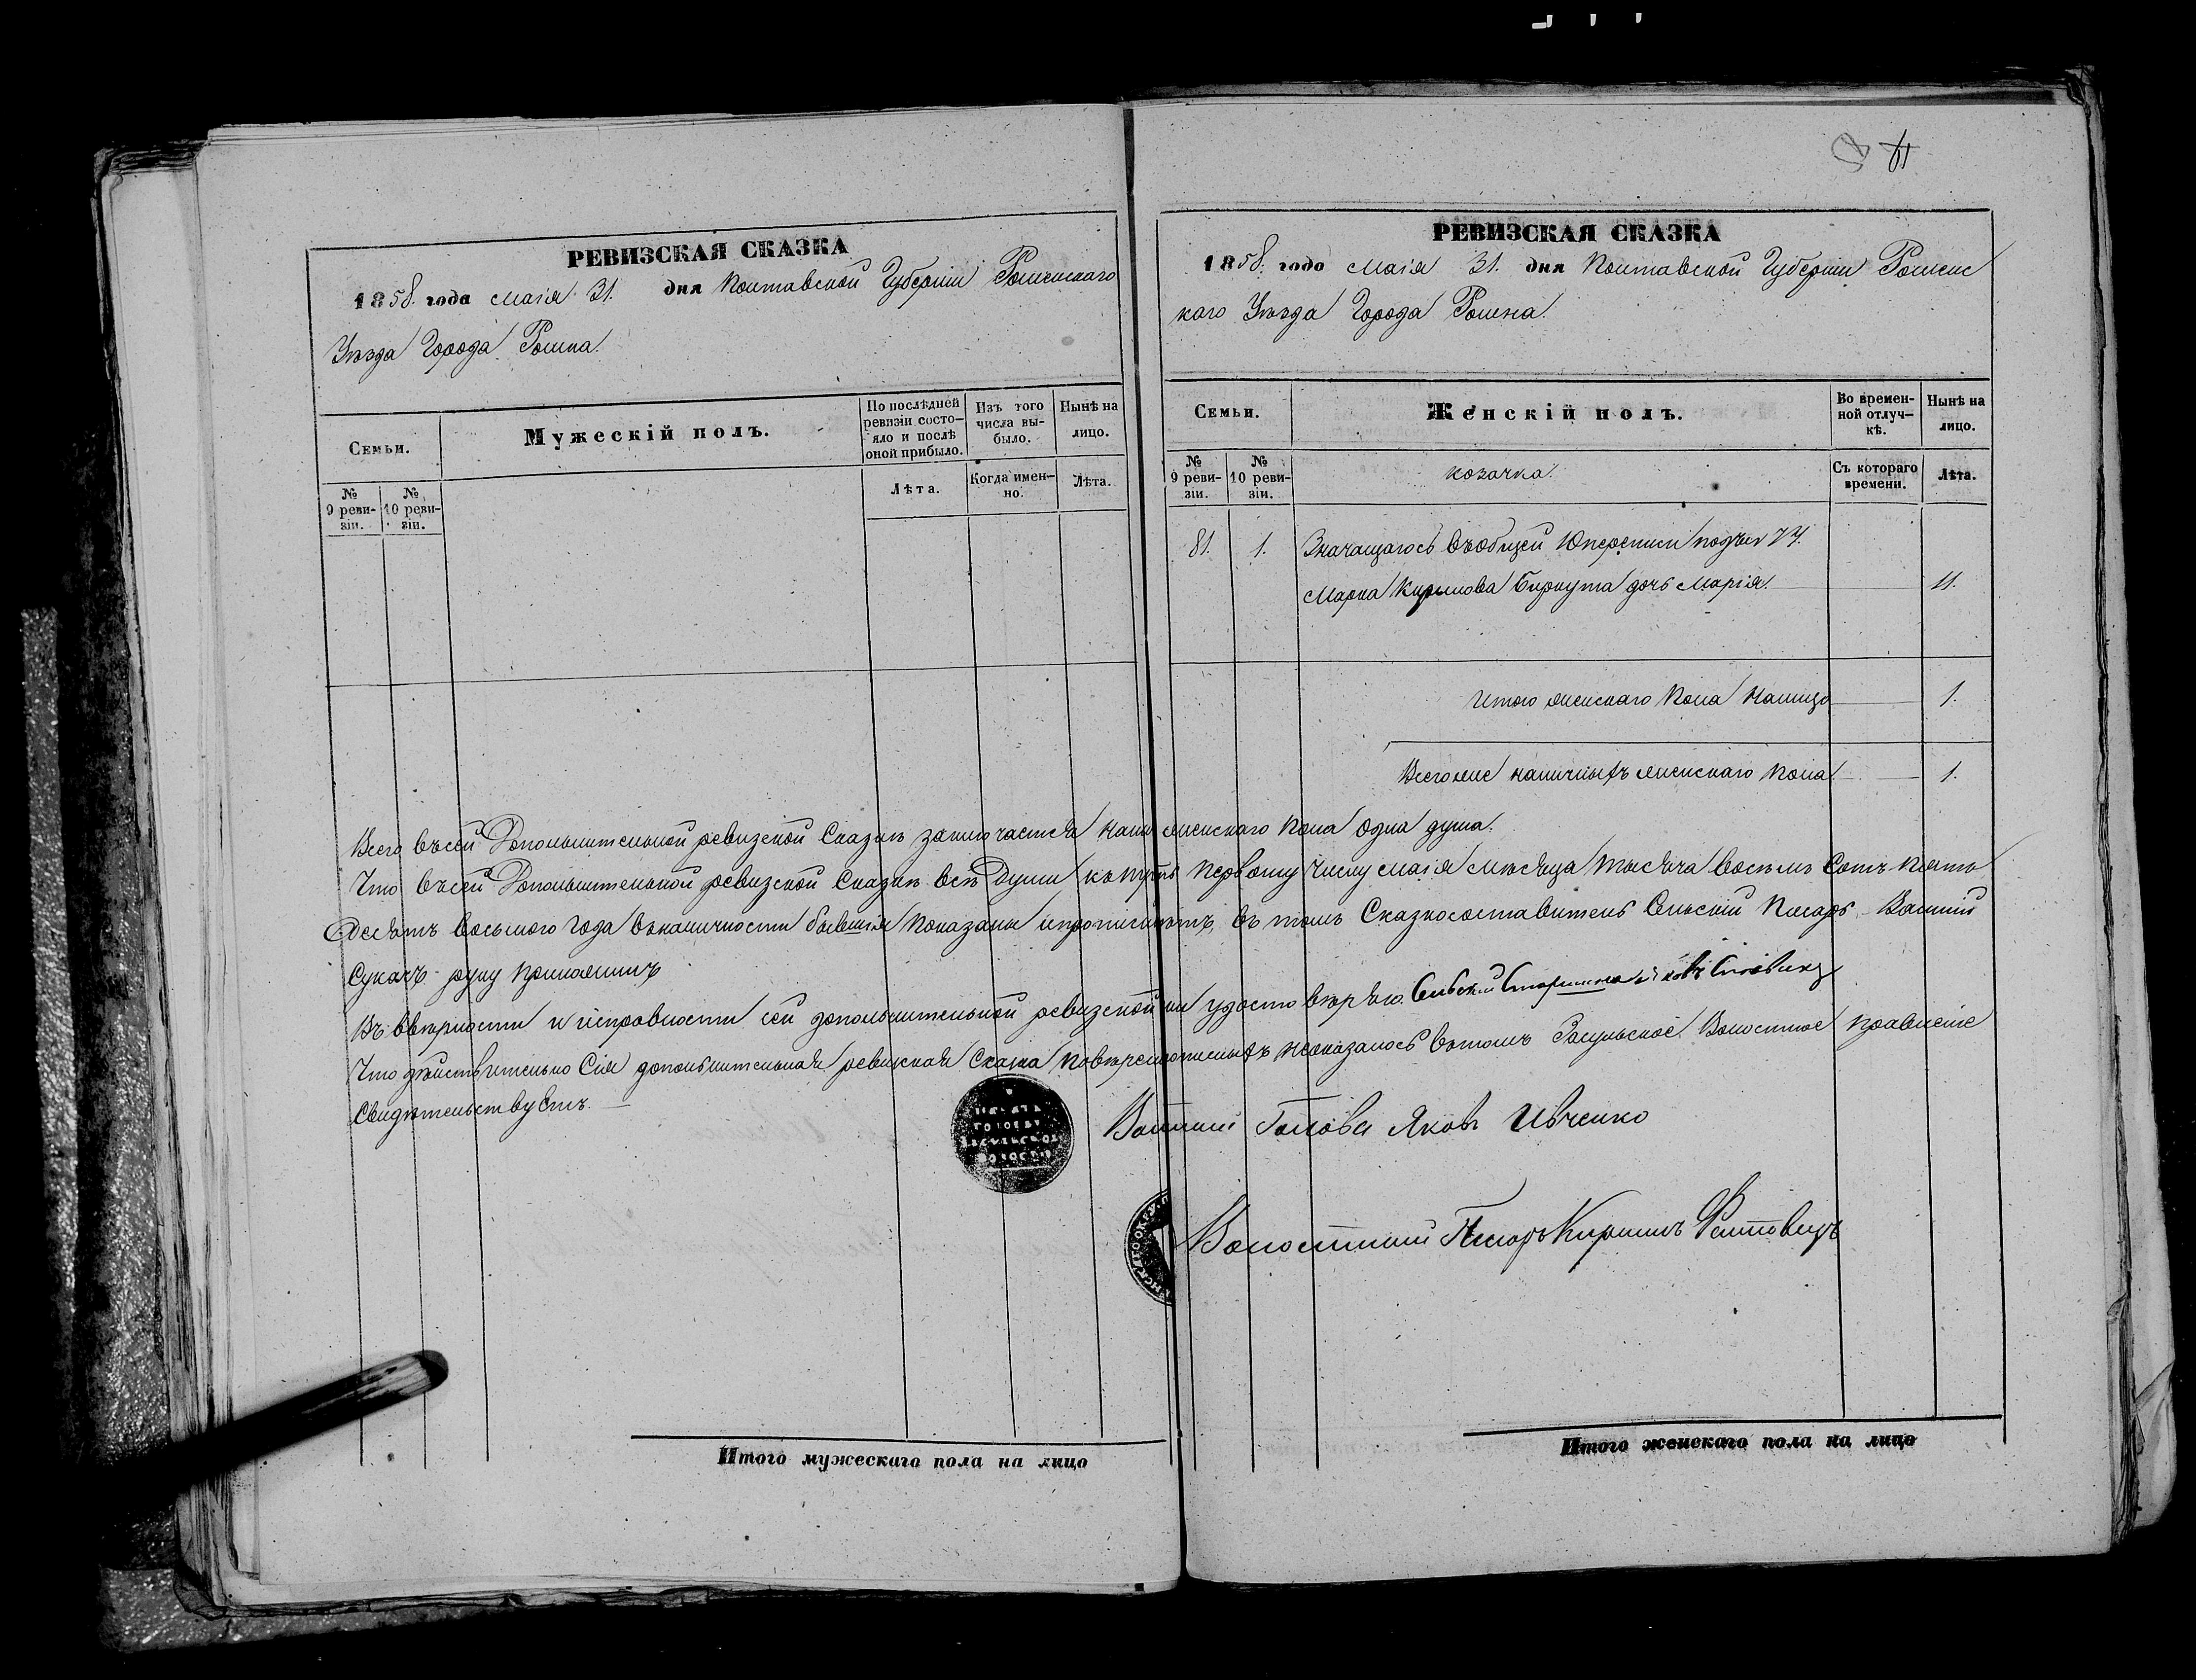 РЕВИЗСКАЯ СКАЗКА
1858. года маія 31. дня Полтавской Губерніи Роменскаго
Уѣзда Города Ромна.
Семьи.
Мужескій полъ.
По послѣдней ревизіи состо-яло и послѣ оной прибыло.
Изъ того числа вы-было.
Нынѣ на лицо.
№ 9 реви-зіи.
№ 10 реви-зіи.
Лѣта.
Когда имен-но.
Лѣта.
РЕВИЗСКАЯ СКАЗКА
1858. года маія 31. дня Полтавской Губерніи Роменс
каго Уѣзда Города Ромна.
Семьи.
Женскій полъ.
Во времен-ной отлуч-кѣ.
Нынѣ на лицо.
№ 9 реви-зіи.
№ 10 реви-зіи.
козачка.
Съ котораго времени.
Лѣта.
81. 1. Значащагось въ общей переписи подъ № 74.
Марка Бирюта дочь Марія. 11.
Итого женскаго пола налицо 1.
Всего же наличныхъ женскаго пола 1.
Всего въ сей Дополнительной ревизской Сказкѣ заключается женскаго пола одна душа.
Что въ сей Дополнительной ревизской Сказкѣ всѣ Души къ первому числу маія мѣсяца тысяча восемь сотъ пять
десятъ восьмого года въ наличности бывшія показаны въ томъ Сказкосоставитель Сельскій Писарь
Сукачъ руку приложилъ
Въ вѣрности и исправности сей дополнительной ревизской удостовѣряю. Сельскій Старшина
Что дѣйствительно Сія дополнительная ревизская Сказка неоказалось въ томъ Засульское Волостное правленіе
Свидѣтельствуетъ.
Голова Яковъ Ивченко
Волостный Писарь Кирилъ
Итого мужескаго пола на лицо
Итого женскаго пола на лицо